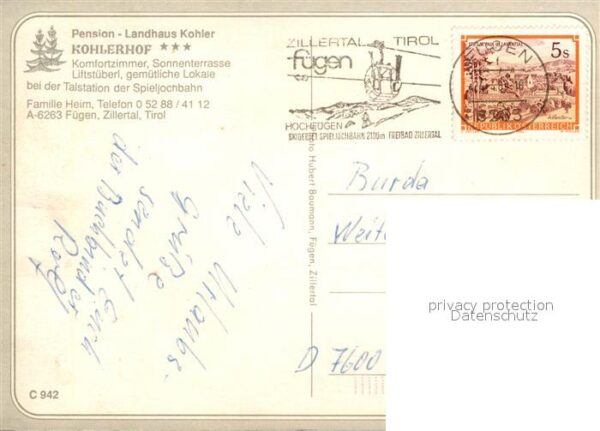 Pension - Landhaus Kohler
KOHLERHOF ★★★
Komfortzimmer, Sonnenterrasse
Liftstüberl, gemütliche Lokale
bei der Talstation der Spieljochbahn
Familie Heim, Telefon 0 52 88 / 41 12
A-6263 Fügen, Zillertal, Tirol
ZILLERTAL TIROL
fügen
HOCHFÜGEN
SKIGEBIET SPIELJOCHBAHN 2100m FREIBAD ZILLERTAL
5s
REPUBLIK ÖSTERREICH
Viele Urlaubs-
grüße
sendet Euch
der Buchbinder
Rolf
Foto Hubert Baumann, Fügen, Zillertal
Burda
D 7600
privacy protection
Datenschutz
C 942